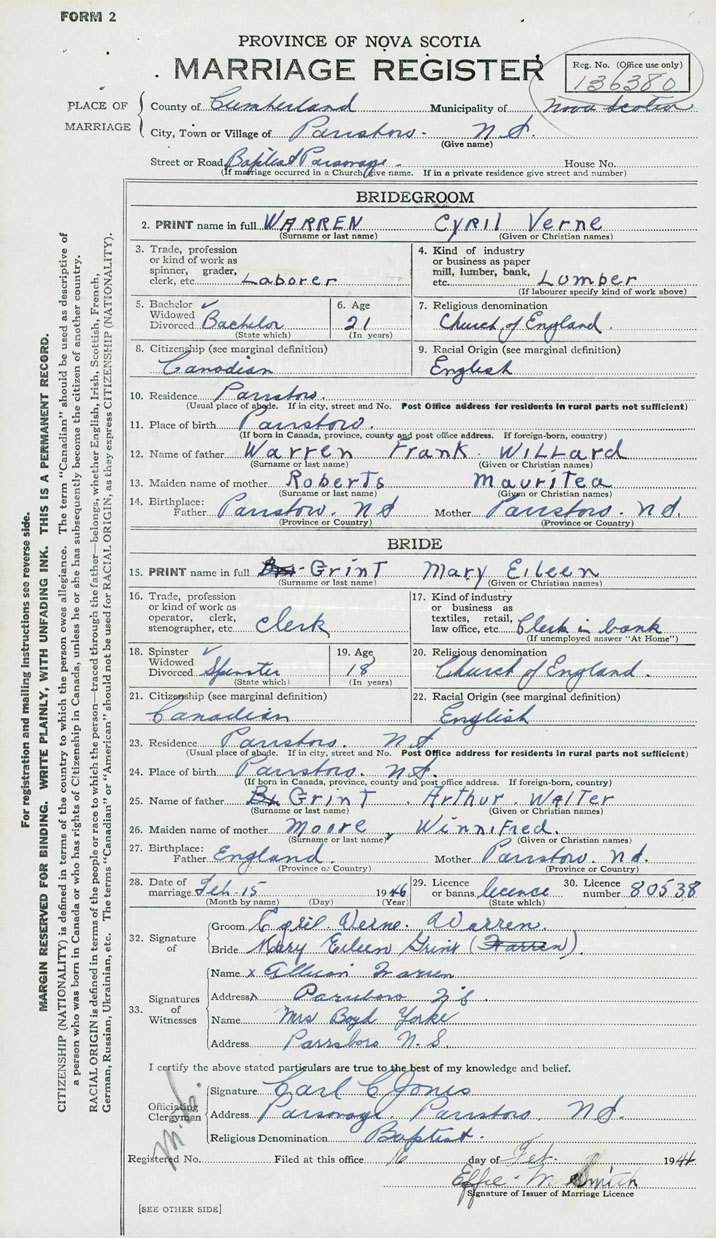 FORM 2
PROVINCE OF NOVA SCOTIA
MARRIAGE REGISTER
Reg. No. (Office use only)
136380
PLACE OF MARRIAGE
County of Cumberland Municipality of Nova Scotia
City, Town or Village of Parrsboro. N.S.
(Give name)
Street or Road Baptist Parsonage. House No.
(If marriage occurred in a Church give name. If in a private residence give street and number)
BRIDEGROOM
2. PRINT name in full WARREN Cyril Verne
(Surname or last name) (Given or Christian names)
3. Trade, profession or kind of work as spinner, grader, clerk, etc. Laborer
4. Kind of industry or business as paper mill, lumber, bank, etc. Lumber
(If labourer specify kind of work above)
5. Bachelor ✓ Widowed Divorced Bachelor
(State which)
6. Age 21
(In years)
7. Religious denomination
Church of England.
8. Citizenship (see marginal definition)
Canadian
9. Racial Origin (see marginal definition)
English
10. Residence Parrsboro.
(Usual place of abode. If in city, street and No. Post Office address for residents in rural parts not sufficient)
11. Place of birth Parrsboro.
(If born in Canada, province, county and post office address. If foreign-born, country)
12. Name of father Warren Frank WILLard
(Surname or last name) (Given or Christian names)
13. Maiden name of mother Roberts Mauritea
(Surname or last name) (Given or Christian names)
14. Birthplace: Father Parrsboro. N.S Mother Parrsboro. N.S.
(Province or Country) (Province or Country)
BRIDE
15. PRINT name in full Grint Mary Eileen
(Surname or last name) (Given or Christian names)
16. Trade, profession or kind of work as operator, clerk, stenographer, etc. clerk
17. Kind of industry or business as textiles, retail, law office, etc. Clerk in bank
(If unemployed answer "At Home")
18. Spinster ✓ Widowed Divorced Spinster
(State which)
19. Age 18
(In years)
20. Religious denomination
Church of England.
21. Citizenship (see marginal definition)
Canadian
22. Racial Origin (see marginal definition)
English
23. Residence Parrsboro. N.S
(Usual place of abode. If in city, street and No. Post Office address for residents in rural parts not sufficient)
24. Place of birth Parrsboro. N.S.
(If born in Canada, province, county and post office address. If foreign-born, country)
25. Name of father Grint Arthur Walter
(Surname or last name) (Given or Christian names)
26. Maiden name of mother Moore, Winnifred.
(Surname or last name) (Given or Christian names)
27. Birthplace: Father England. Mother Parrsboro. N.S.
(Province or Country) (Province or Country)
28. Date of marriage Feb. 15 1946
(Month by name) (Day) (Year)
29. Licence or banns licence
(State which)
30. Licence number 80538
32. Signature of
Groom Cyril Verne Warren.
Bride Mary Eileen Grint (Warren)
33. Signatures of Witnesses
Name x Allison Warren
Address x Parrsboro N.S.
Name Mrs Boyd Yorke
Address Parrsboro N.S.
I certify the above stated particulars are true to the best of my knowledge and belief.
Officiating Clergyman
Signature Carl C Jones
Address Parsonage. Parrsboro, N.S.
Religious Denomination Baptist.
Registered No. Filed at this office 16 day of Feb. 194
Effie M Smith
Signature of Issuer of Marriage Licence
[SEE OTHER SIDE]
For registration and mailing instructions see reverse side.
MARGIN RESERVED FOR BINDING. WRITE PLAINLY, WITH UNFADING INK. THIS IS A PERMANENT RECORD.
CITIZENSHIP (NATIONALITY) is defined in terms of the country to which the person owes allegiance. The term "Canadian" should be used as descriptive of
a person who was born in Canada or who has rights of Citizenship in Canada, unless he or she has subsequently become the citizen of another country.
RACIAL ORIGIN is defined in terms of the people or race to which the person—traced through the father—belongs, whether English, Irish, Scottish, French,
German, Russian, Ukrainian, etc. The terms "Canadian" or "American" should not be used for RACIAL ORIGIN, as they express CITIZENSHIP (NATIONALITY).